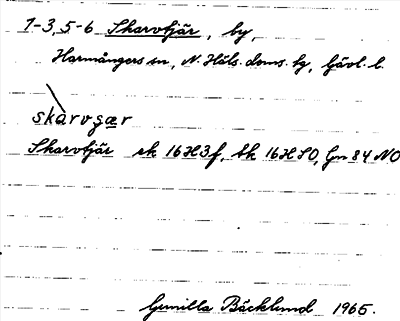 1-3, 5-6 Skarvtjär, by,
Harmångers sn, N. Häls. doms. hg, Gävl. l.
skàrvçær
Skarvtjär ek 16H3f, tk 16H SO, Gn 84 NO
Gunilla Bäcklund 1965.